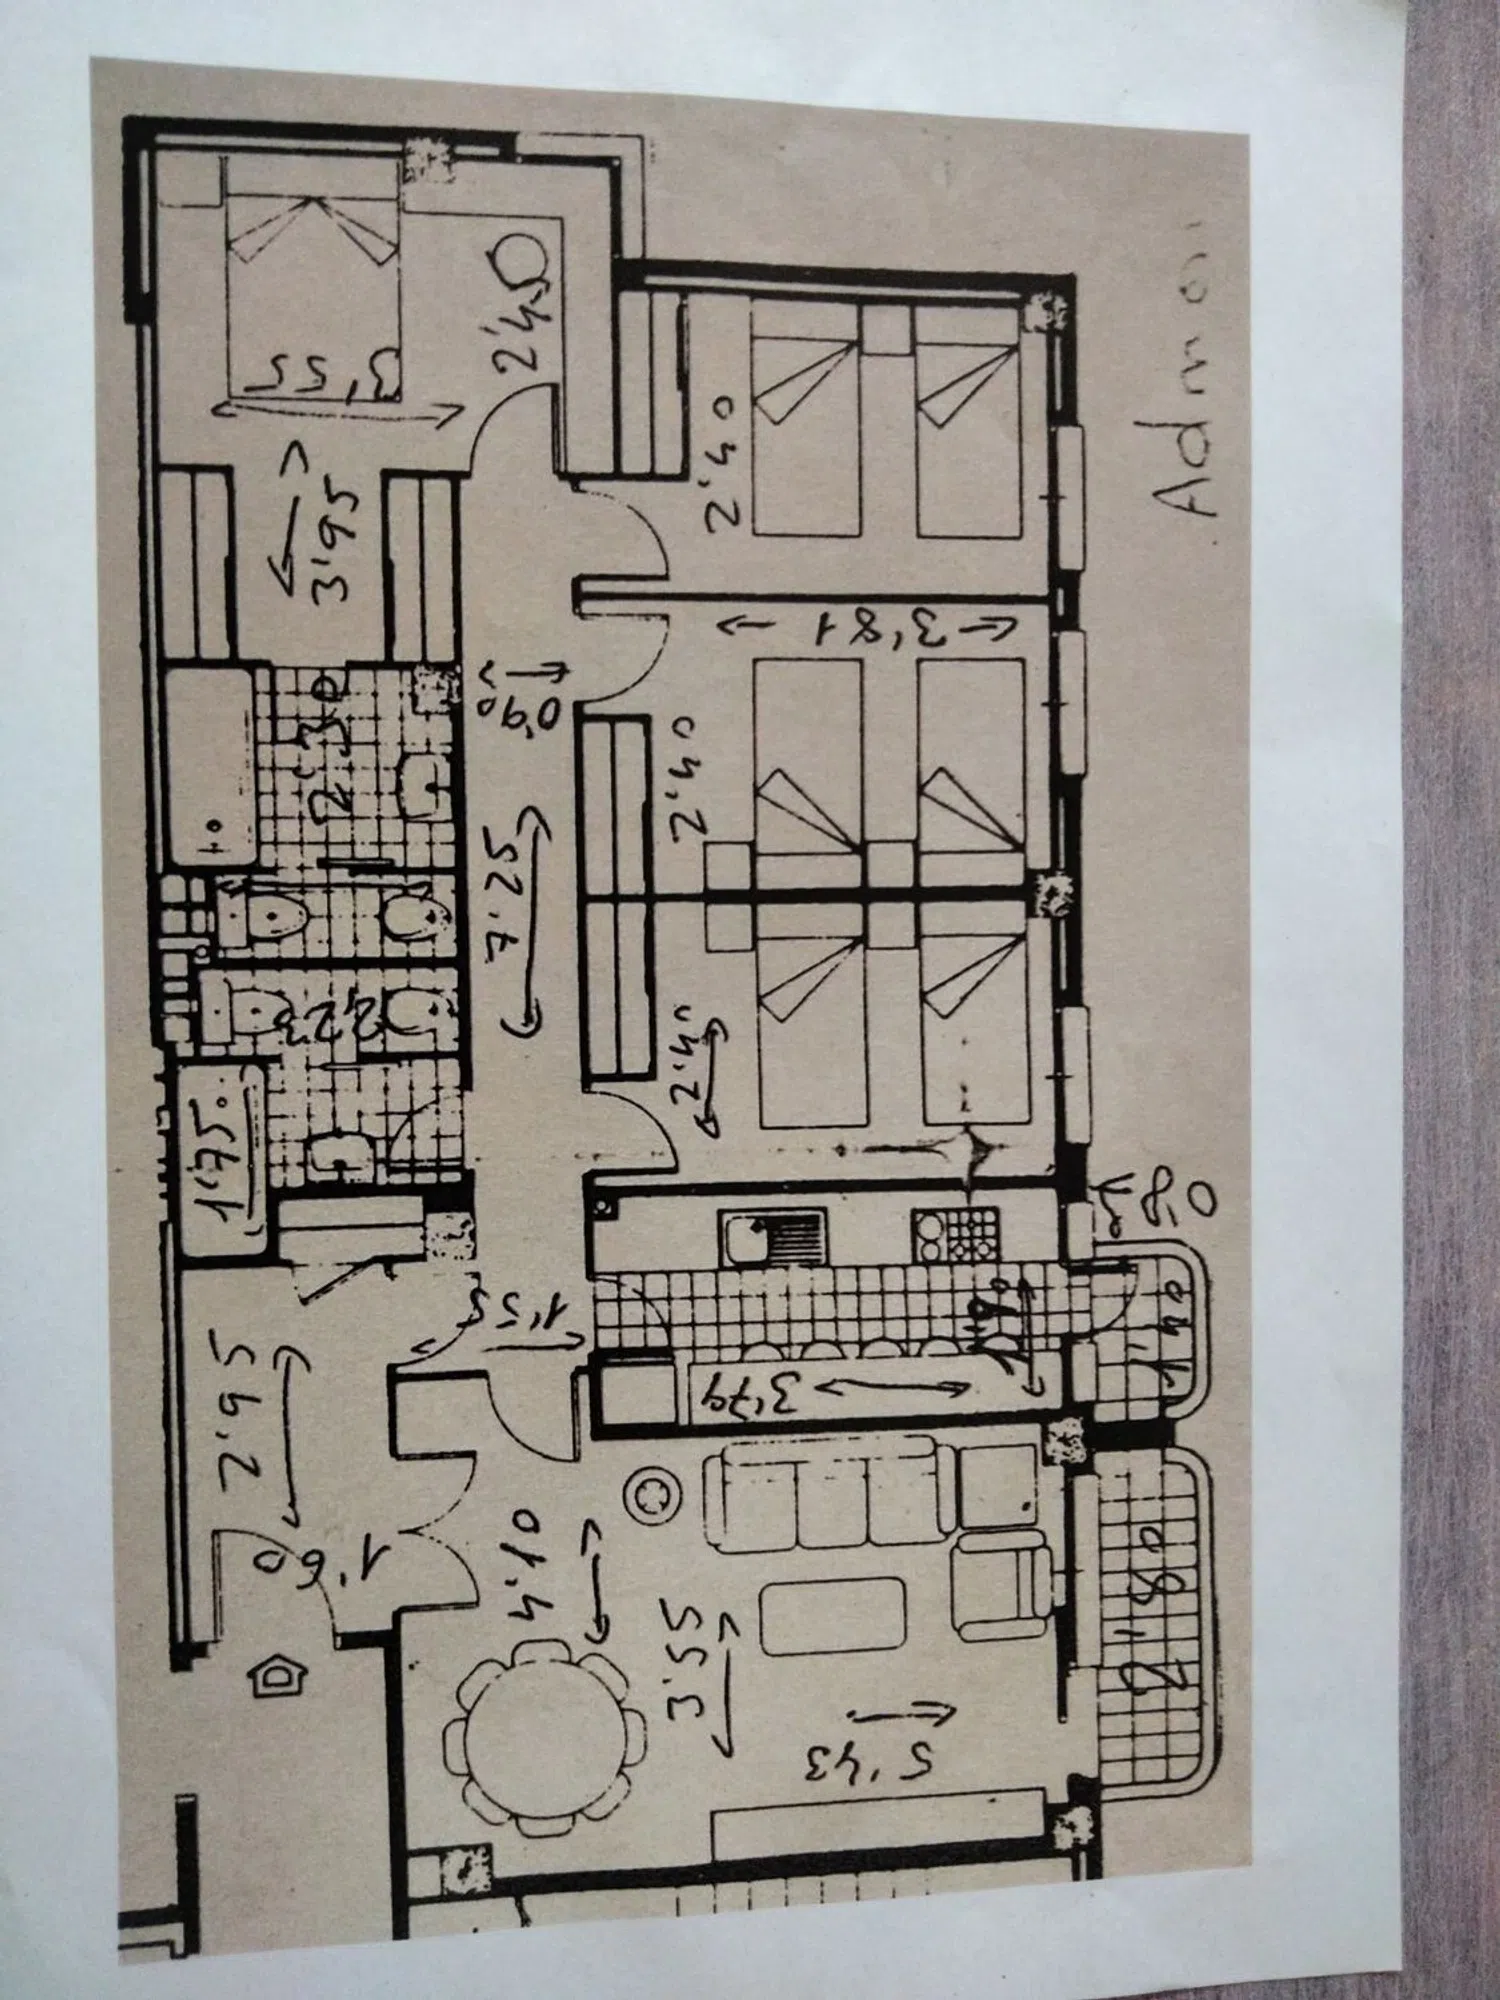 3'55
2'45
3'95
2'40
Admon
3'81
2'30
0'90
2'40
7'25
2'23
2'40
1'75
0'8
1'55
1'90
1'40
3'79
2'95
1'60
4'10
3'55
2'80
5'43
D